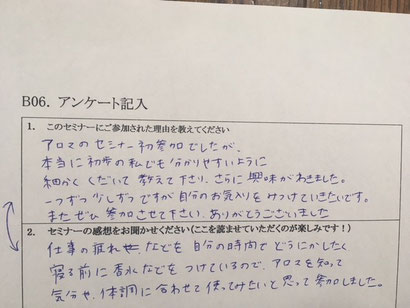 B06. アンケート記入
1. このセミナーにご参加された理由を教えてください
アロマのセミナー初参加でしたが、
本当に初歩の私でも分かりやすいように
細かくくだいて教えて下さり、さらに興味がわきました。
一つずつ少しずつですが自分のお気入りをみつけていきたいです。
またぜひ参加させて下さい。ありがとうございました
2. セミナーの感想をお聞かせください(ここを読ませていただくのが楽しみです!)
仕事の疲れなどを自分の時間でどうにかしたく
寝る前に香水などをつけているので、アロマを知って
気分や、体調に合わせて使ってみたいと思って参加しました。